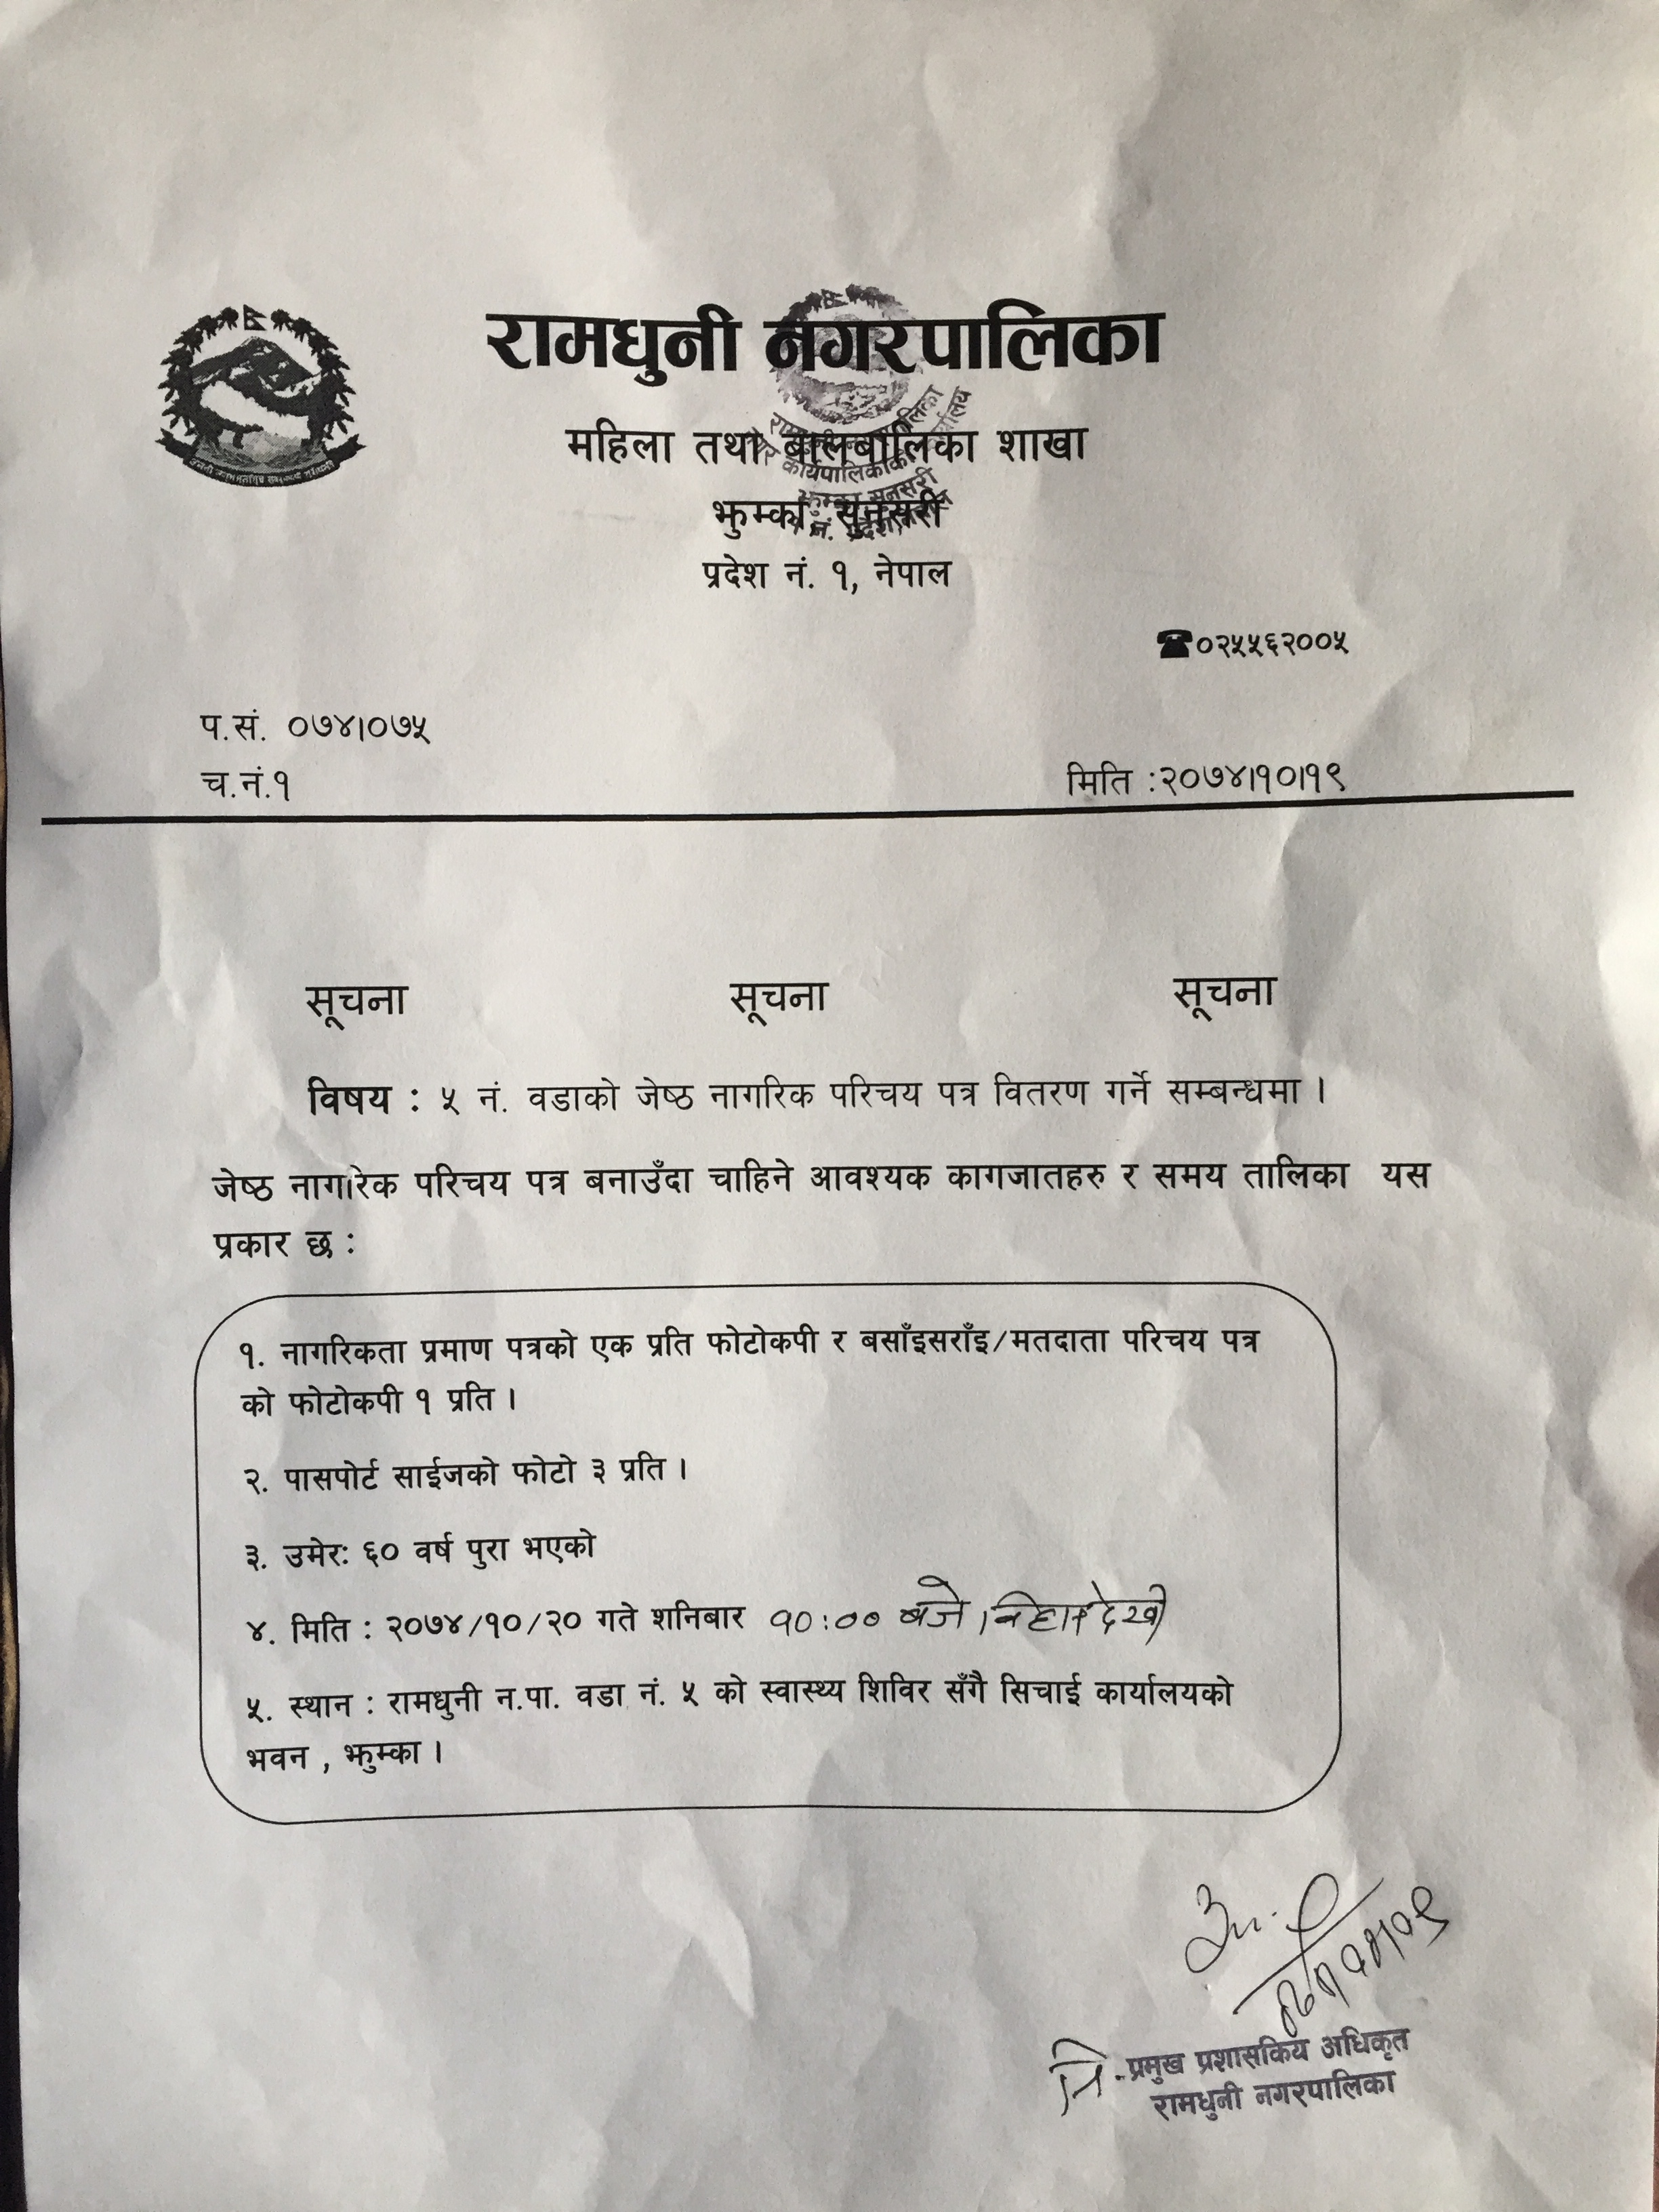 रामधुनी नगरपालिका
महिला तथा बालबालिका शाखा
झुम्का, सुनसरी
प्रदेश नं. १, नेपाल
☎०२५५६२००५
प.सं. ०७४।०७५
च.नं.१
मिति :२०७४।१०।१९
सूचना सूचना सूचना
विषय : ५ नं. वडाको जेष्ठ नागरिक परिचय पत्र वितरण गर्ने सम्बन्धमा ।
जेष्ठ नागरिक परिचय पत्र बनाउँदा चाहिने आवश्यक कागजातहरु र समय तालिका यस
प्रकार छ :
१. नागरिकता प्रमाण पत्रको एक प्रति फोटोकपी र बसाँइसराँइ/मतदाता परिचय पत्र
को फोटोकपी १ प्रति ।
२. पासपोर्ट साईजको फोटो ३ प्रति ।
३. उमेर: ६० वर्ष पुरा भएको
४. मिति : २०७४/१०/२० गते शनिबार १०:०० बजे । बिहान देखी
५. स्थान : रामधुनी न.पा. वडा नं. ५ को स्वास्थ्य शिविर सँगै सिचाई कार्यालयको
भवन , झुम्का ।
नि. प्रमुख प्रशासकिय अधिकृत
रामधुनी नगरपालिका